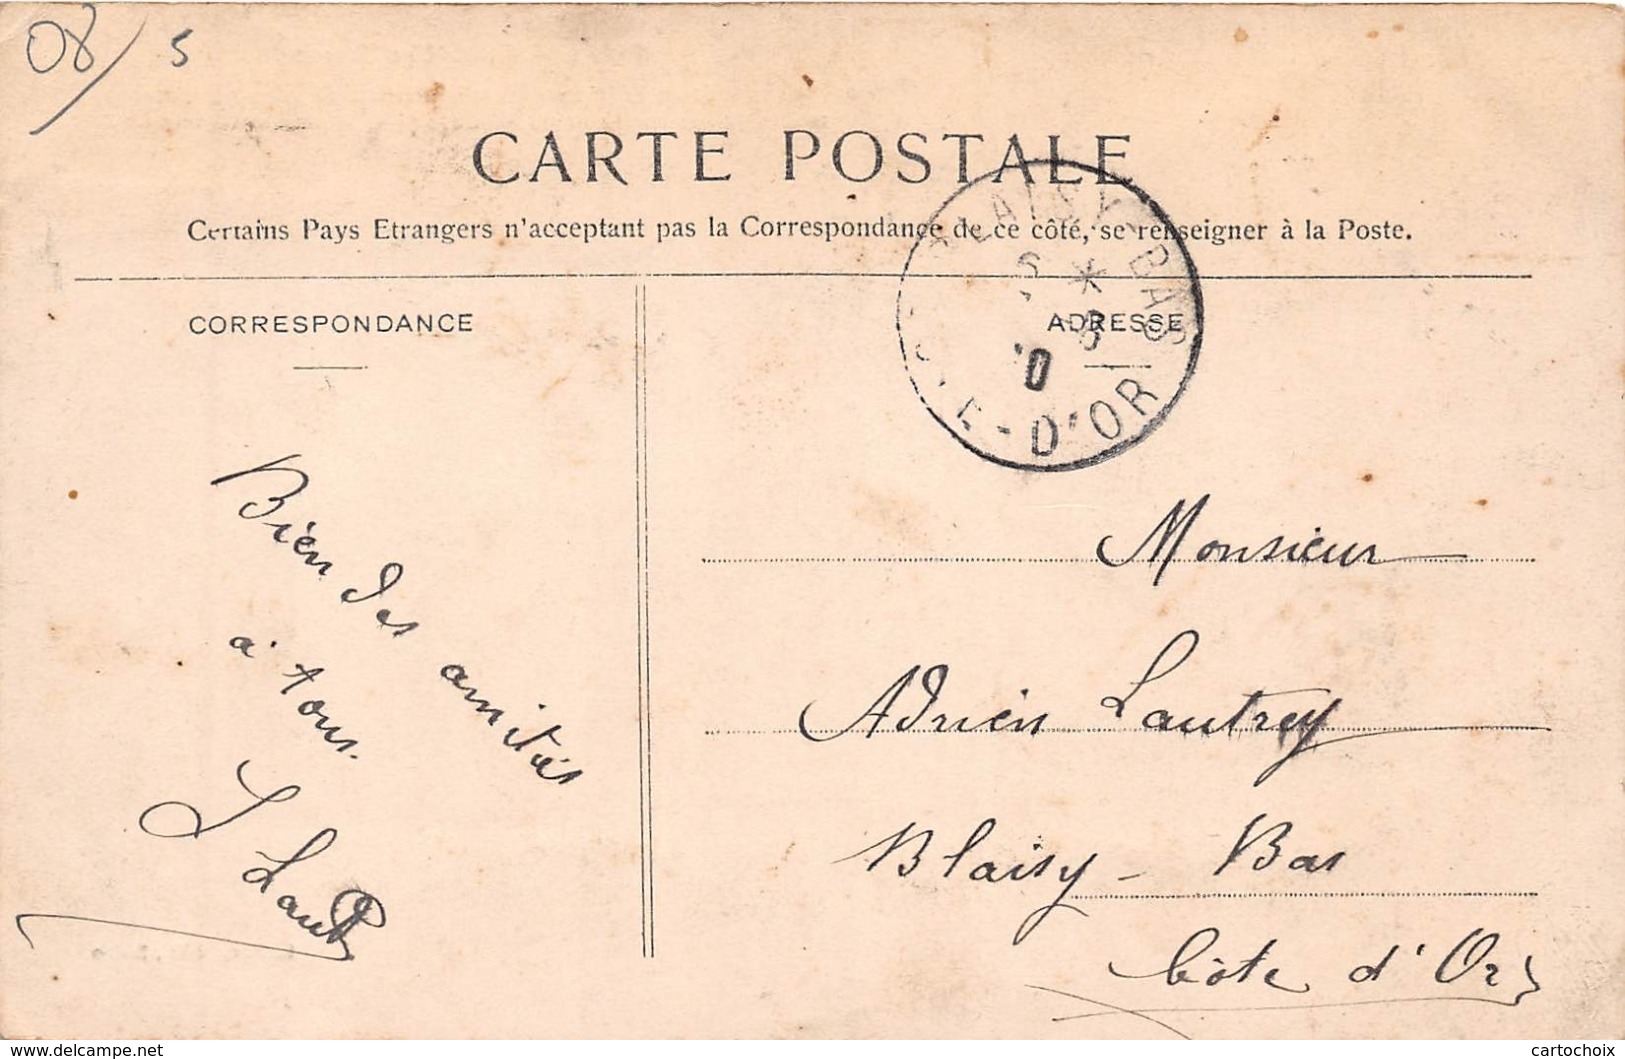 08/ 5
CARTE POSTALE
Certains Pays Etrangers n'acceptant pas la Correspondance de ce côté, se renseigner à la Poste.
CORRESPONDANCE
ADRESSE
BLAISY-BAS
E-D'OR
Bien des amitiés
à tous.
Monsieur
Adrien Lautrey
Blaisy-Bas
Côte d'Or
www.delcampe.net
cartochoix